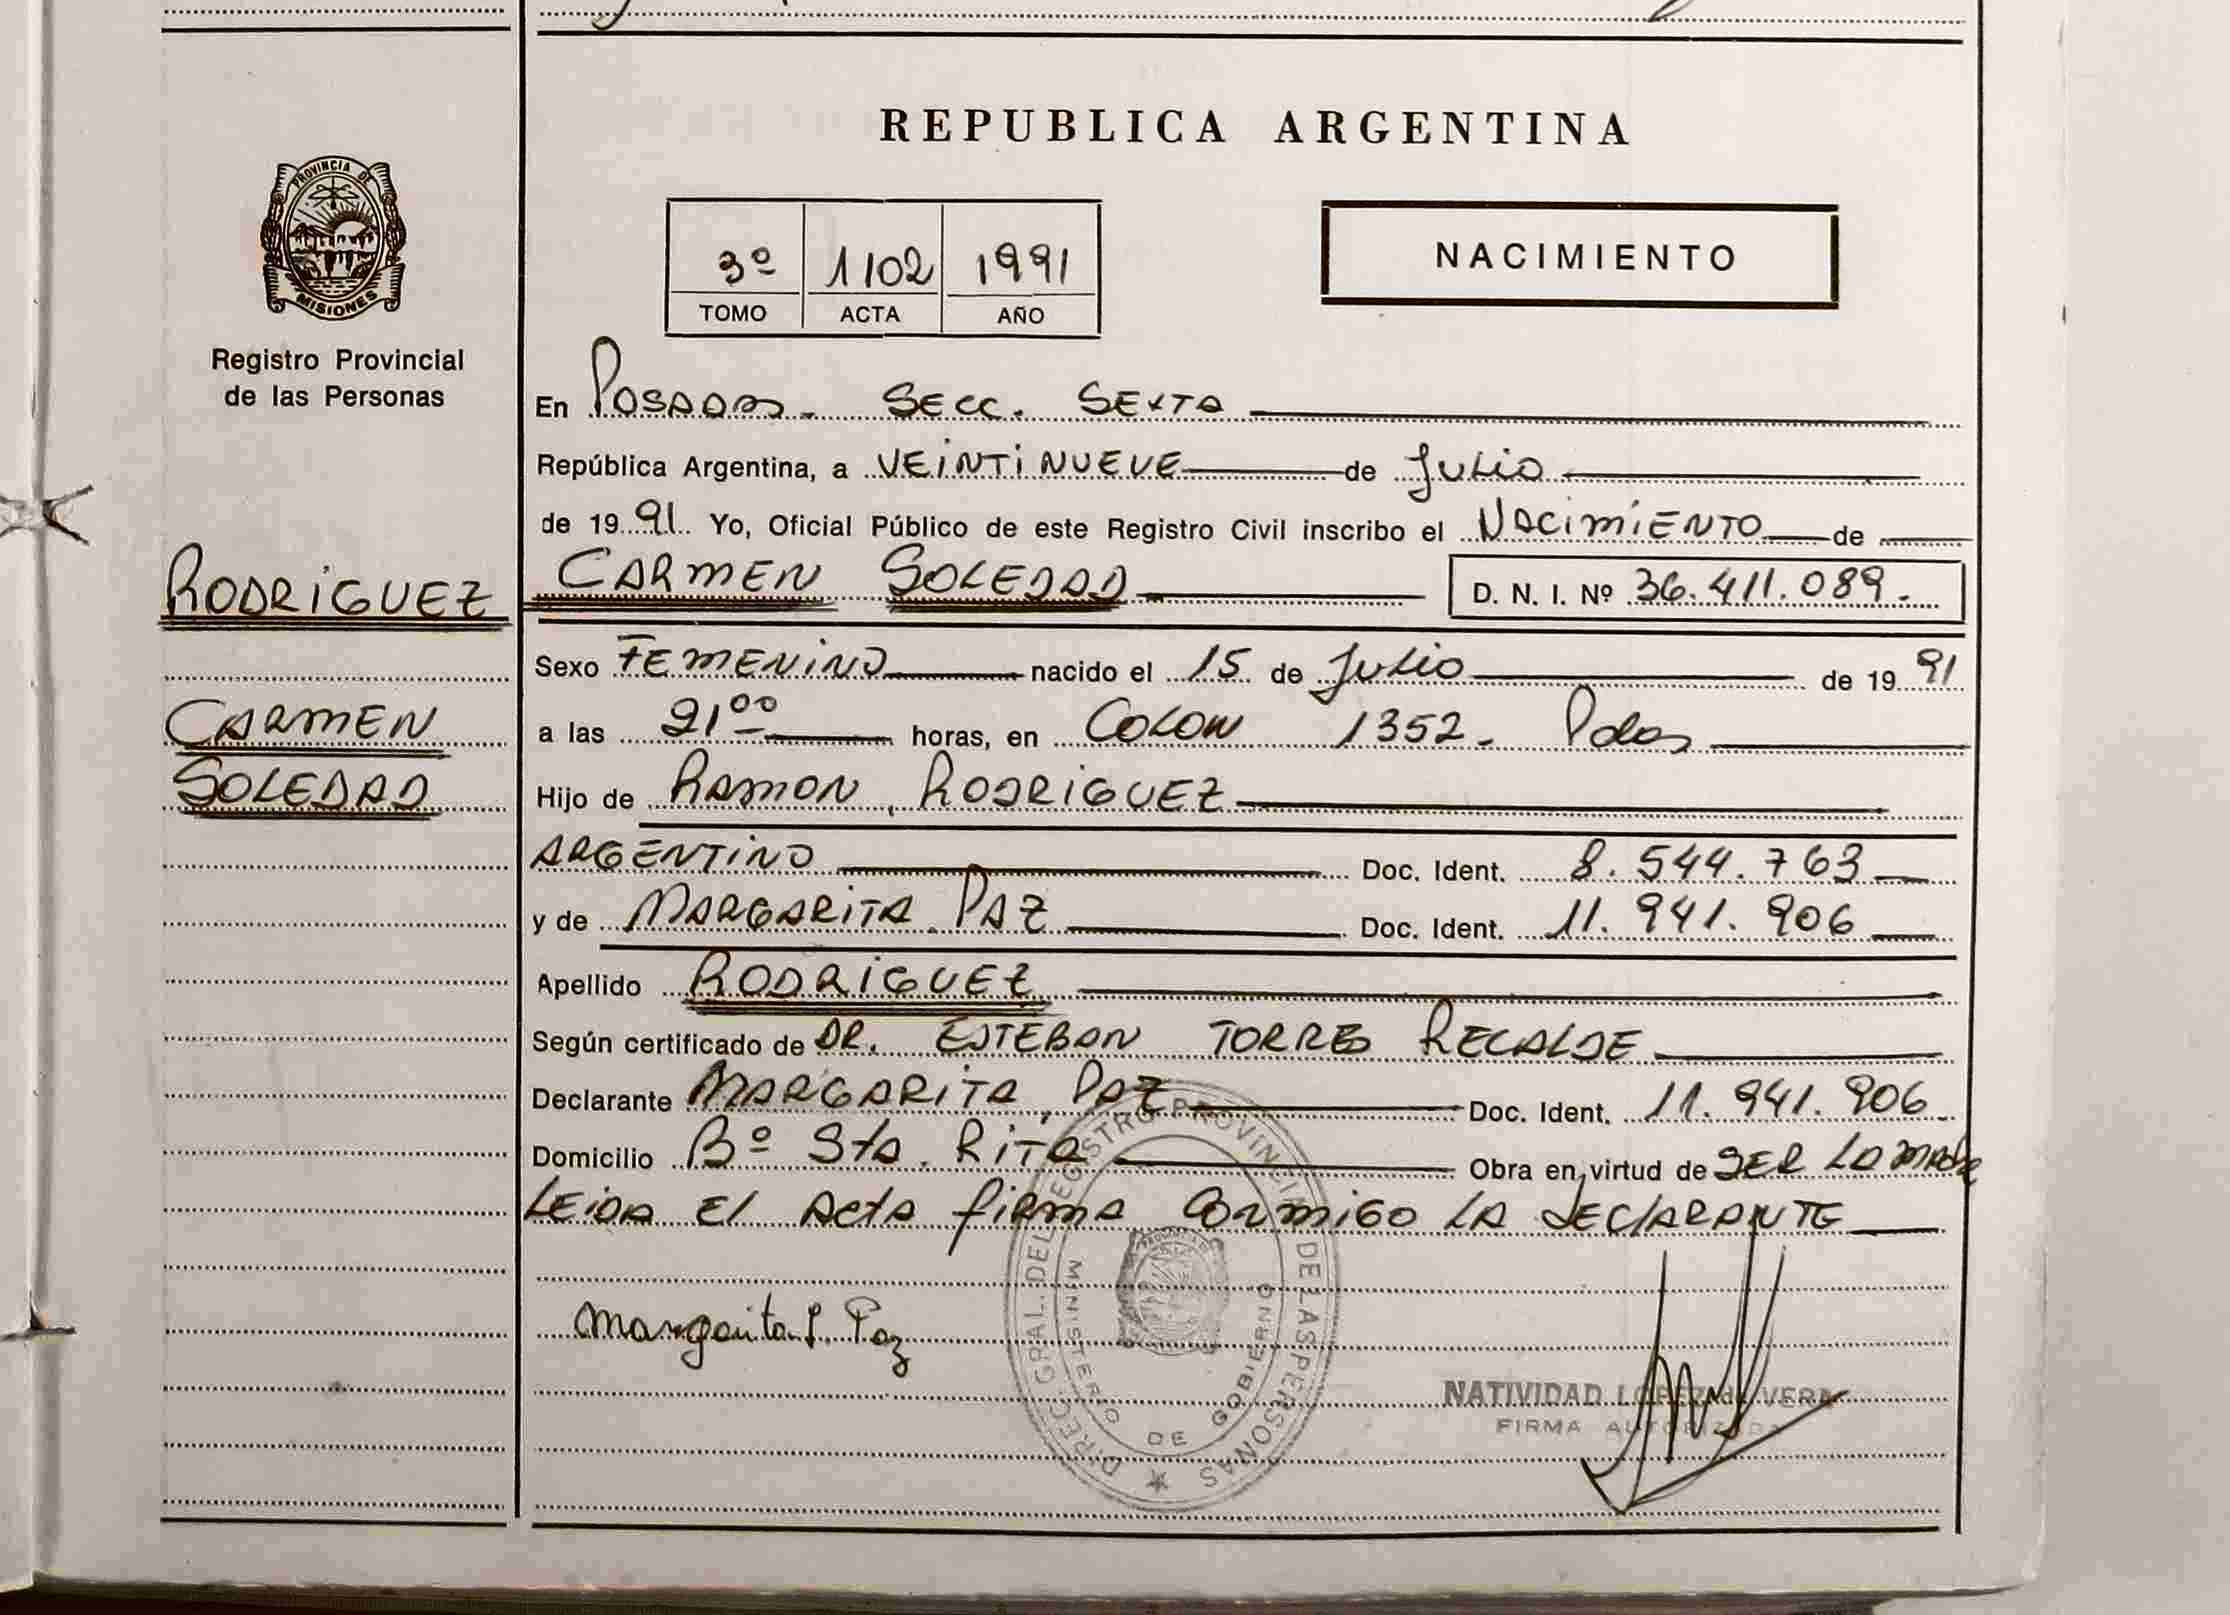 REPUBLICA ARGENTINA
PROVINCIA DE
MISIONES
Registro Provincial
de las Personas
3º 1102 1991
TOMO ACTA AÑO
NACIMIENTO
En Posadas. Secc. Sexta
República Argentina, a VEINTINUEVE de Julio
de 1991 Yo, Oficial Público de este Registro Civil inscribo el NACIMIENTO de
RODRIGUEZ
CARMEN SOLEDAD D. N. I. Nº 36.411.089.
Sexo FEMENINO nacido el 15 de Julio de 1991
CARMEN
SOLEDAD
a las 21⁰⁰ horas, en COLON 1352. Pdas
Hijo de RAMON RODRIGUEZ
ARGENTINO Doc. Ident. 8.544.763
y de MARGARITA PAZ Doc. Ident. 11.941.906
Apellido RODRIGUEZ
Según certificado de DR. ESTEBAN TORRES RECALDE
Declarante MARGARITA PAZ Doc. Ident. 11.941.906
Domicilio Bº Sta. RITA Obra en virtud de SER LA MADRE
LEIDA El Acta firma CONMIGO LA DECLARANTE
Margarita L. Paz
DIREC. GRAL. DEL REGISTRO PROVINCIAL DE LAS PERSONAS
MINISTERIO DE GOBIERNO
NATIVIDAD LOPEZ de VERA
FIRMA AUTORIZADA